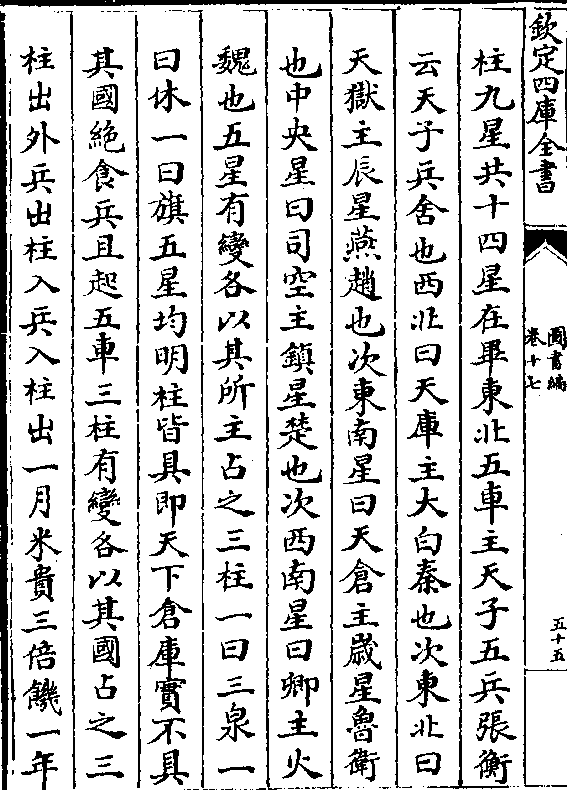 欽定四庫全書
圖書編
卷十七
五十五
柱九星共十四星在畢東北五車主天子五兵張衡
云天子兵舍也西北曰天庫主大白秦也次東北曰
天獄主辰星燕趙也次東南星曰天倉主嵗星魯衛
也中央星曰司空主鎮星楚也次西南星曰卿主火
魏也五星有變各以其所主占之三柱一曰三泉一
曰休一曰旗五星均明柱皆具即天下倉庫實不具
其國絶食兵且起五車三柱有變各以其國占之三
柱出外兵出柱入兵入柱出一月米貴三倍饑一年